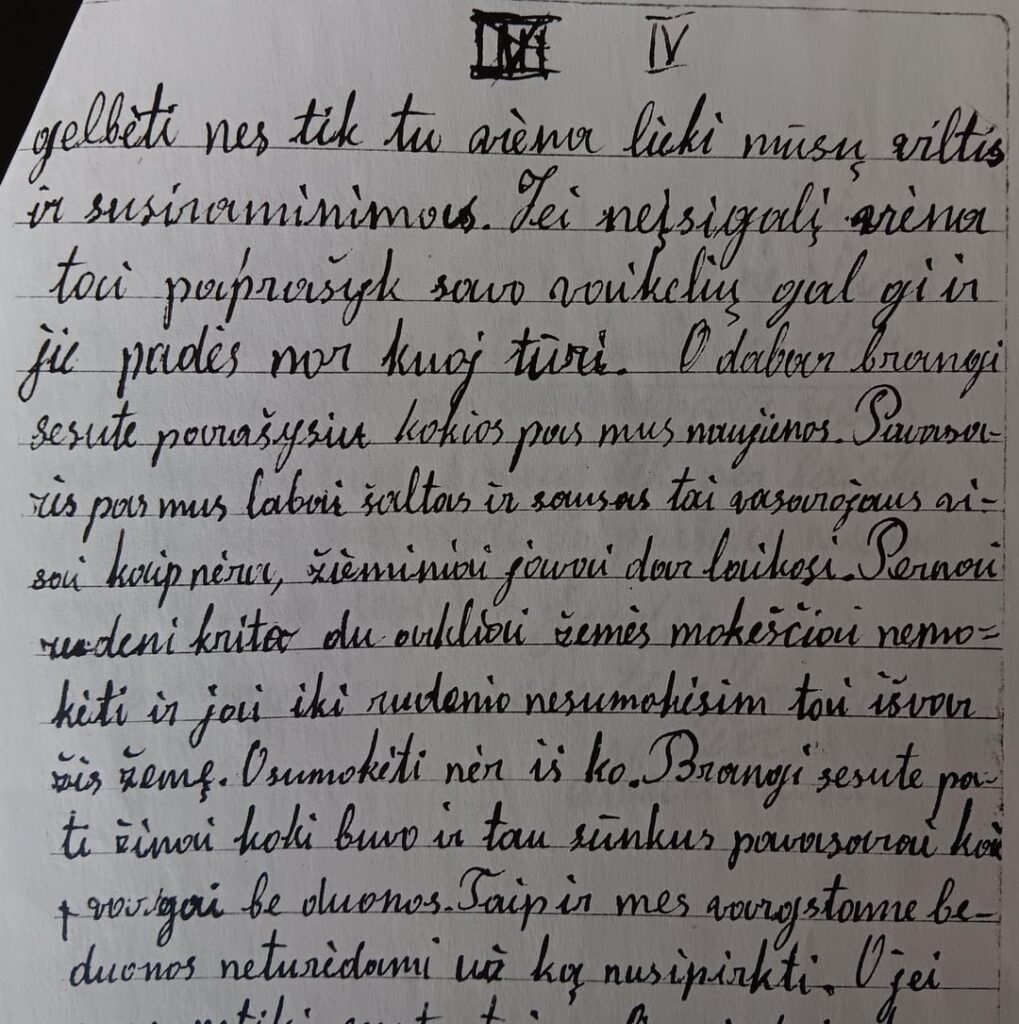 IV
gelbėti nes tik tu viėna lieki mūsų viltis
ir susiraminimas. Jei neįsigalį viėna
tai paprašyk savo vaikelių gal gi ir
jie padės nor kuoj tūri. O dabar brangi
sesute parašysiu kokios pas mus naujienos. Pavasa-
ris pas mus labai šaltas ir sausas tai vasarojaus vi-
sai kaip nėra, žiėminiai javai dar laikosi. Pernai
rudeni krita du arkliai žemės mokeščiai nemo=
kėti ir jai iki rudenio nesumokėsim tai išvar
žis žemę. O sumokėti nėr iš ko. Brangi sesute pa-
ti žinai koki buvo ir tau sūnkus pavasarai kai
vargai be duonos. Taip ir mes vargstame be-
duonos neturėdami už ką nusipirkti. O jei